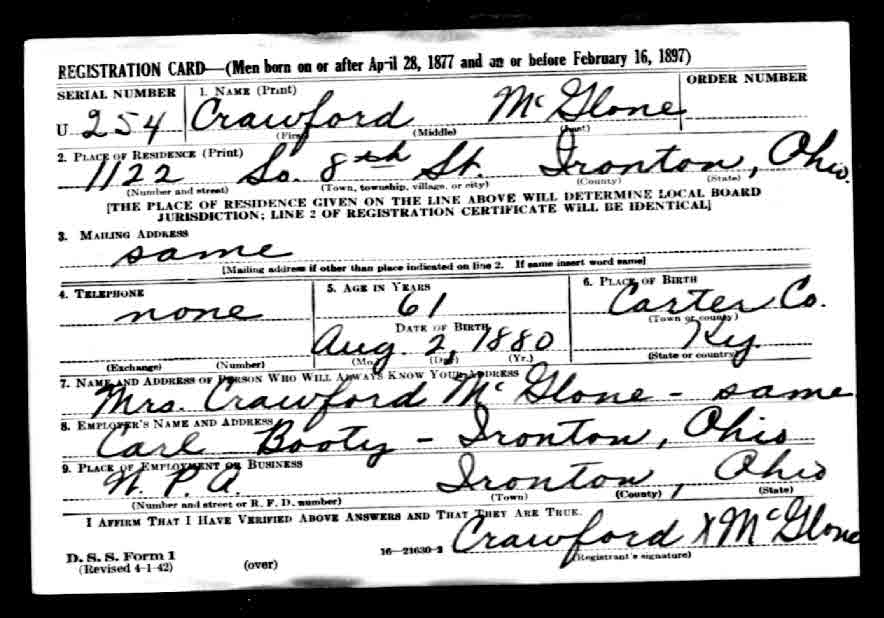 REGISTRATION CARD—(Men born on or after April 28, 1877 and on or before February 16, 1897)
SERIAL NUMBER 1. NAME (Print) ORDER NUMBER
U 254 Crawford McGlone
(First) (Middle) (Last)
2. PLACE OF RESIDENCE (Print)
1122 So. 8th St. Ironton, Ohio.
(Number and street) (Town, township, village, or city) (County) (State)
[THE PLACE OF RESIDENCE GIVEN ON THE LINE ABOVE WILL DETERMINE LOCAL BOARD
JURISDICTION; LINE 2 OF REGISTRATION CERTIFICATE WILL BE IDENTICAL]
3. MAILING ADDRESS
same
[Mailing address if other than place indicated on line 2. If same insert word same]
4. TELEPHONE 5. AGE IN YEARS 6. PLACE OF BIRTH
none 61 Carter Co.
DATE OF BIRTH (Town or county)
Aug. 2, 1880 Ky.
(Exchange) (Number) (Mo.) (Day) (Yr.) (State or country)
7. NAME AND ADDRESS OF PERSON WHO WILL ALWAYS KNOW YOUR ADDRESS
Mrs. Crawford McGlone - same
8. EMPLOYER'S NAME AND ADDRESS
Carl Booty - Ironton, Ohio
9. PLACE OF EMPLOYMENT OR BUSINESS
W. P. A. Ironton, Ohio
(Number and street or R. F. D. number) (Town) (County) (State)
I AFFIRM THAT I HAVE VERIFIED ABOVE ANSWERS AND THAT THEY ARE TRUE.
Crawford X McGlone
D. S. S. Form 1 16—21630-2 (Registrant's signature)
(Revised 4-1-42) (over)